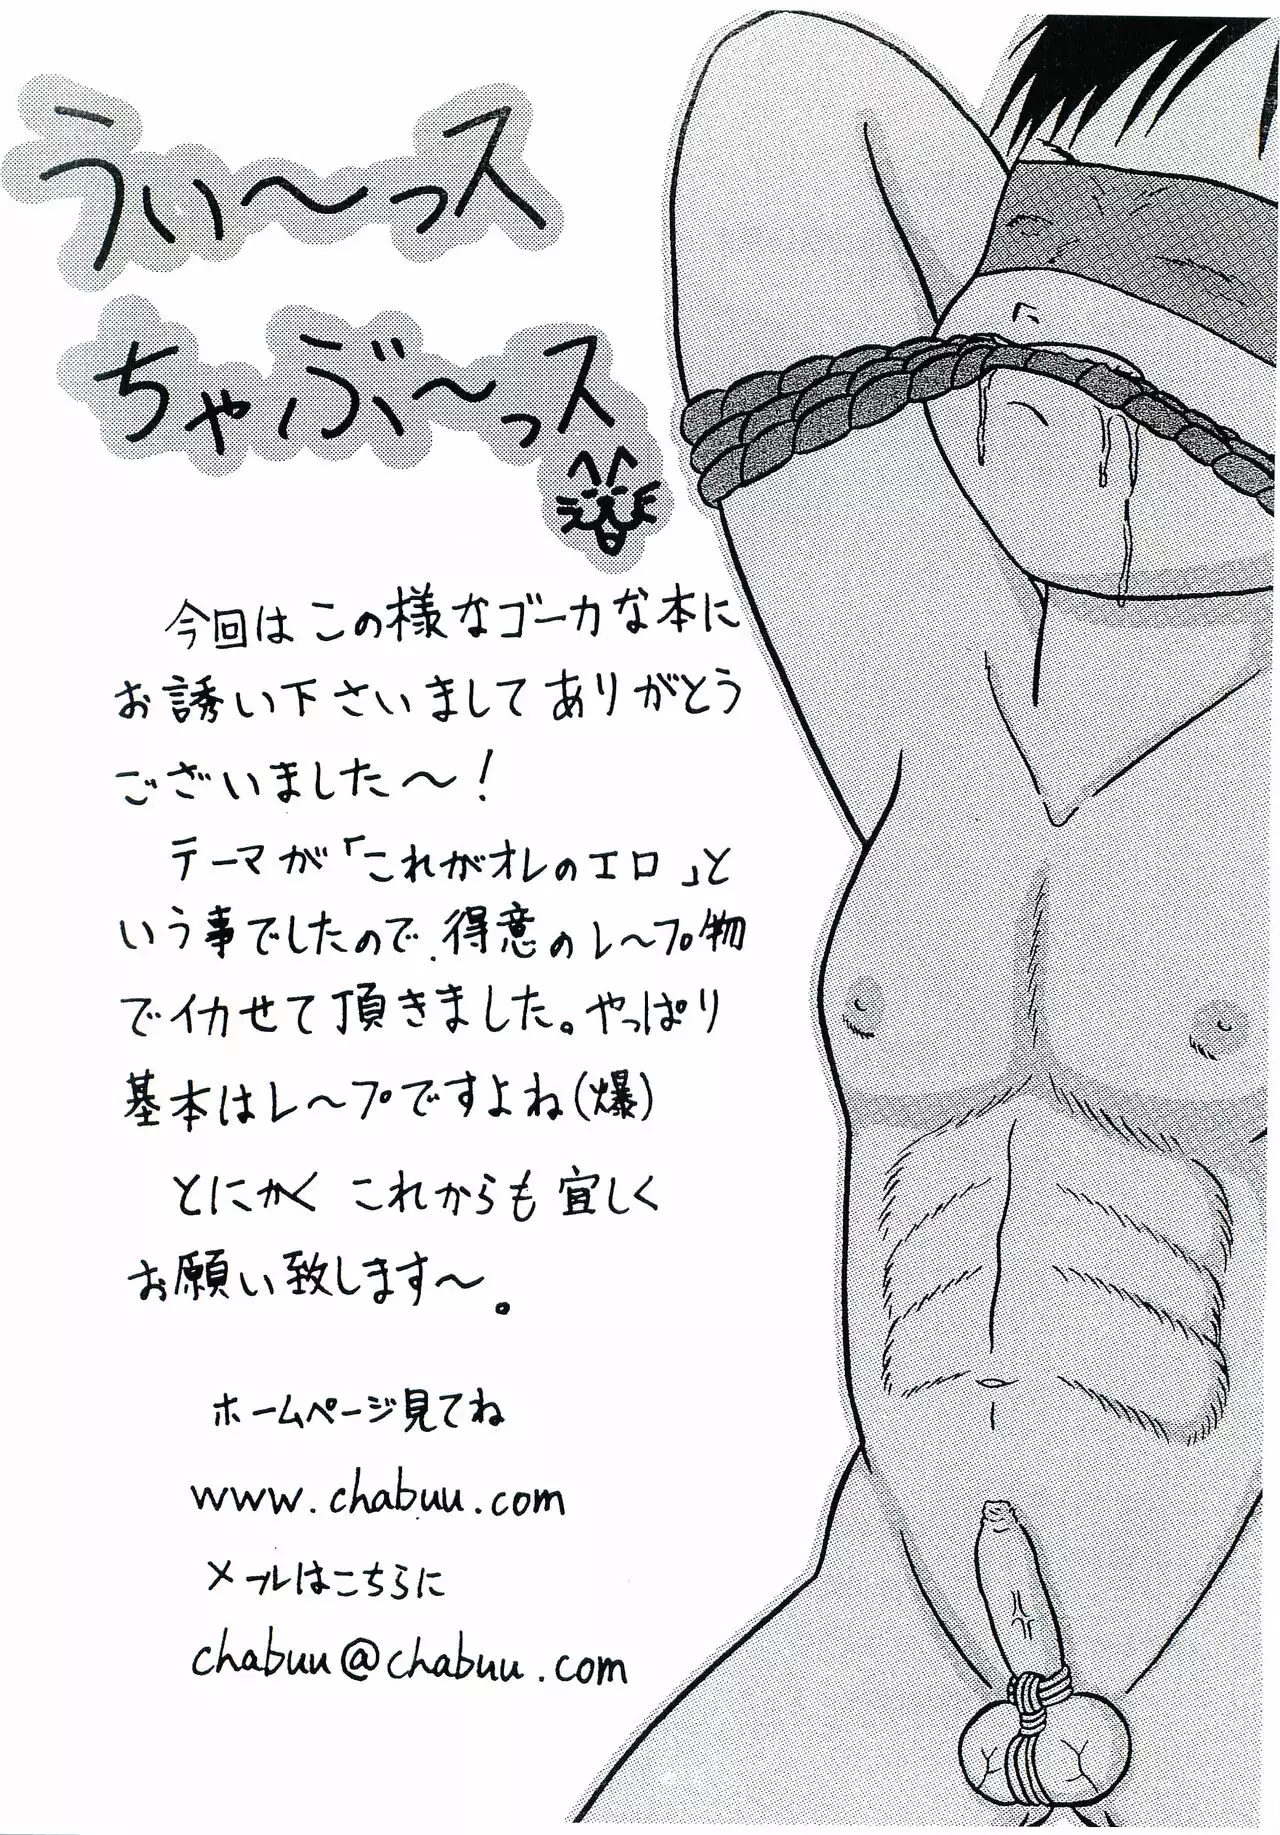 うぃ〜っス
ちゃぶ〜っス
今回はこの様なゴーカな本に
お誘い下さいましてありがとう
ございました〜!
テーマが「これがオレのエロ」と
いう事でしたので、得意のレ〜プ物
でイカせて頂きました。やっぱり
基本はレ〜プですよね(爆)
とにかくこれからも宜しく
お願い致します〜。
ホームページ見てね
www.chabuu.com
メールはこちらに
chabuu@chabuu.com